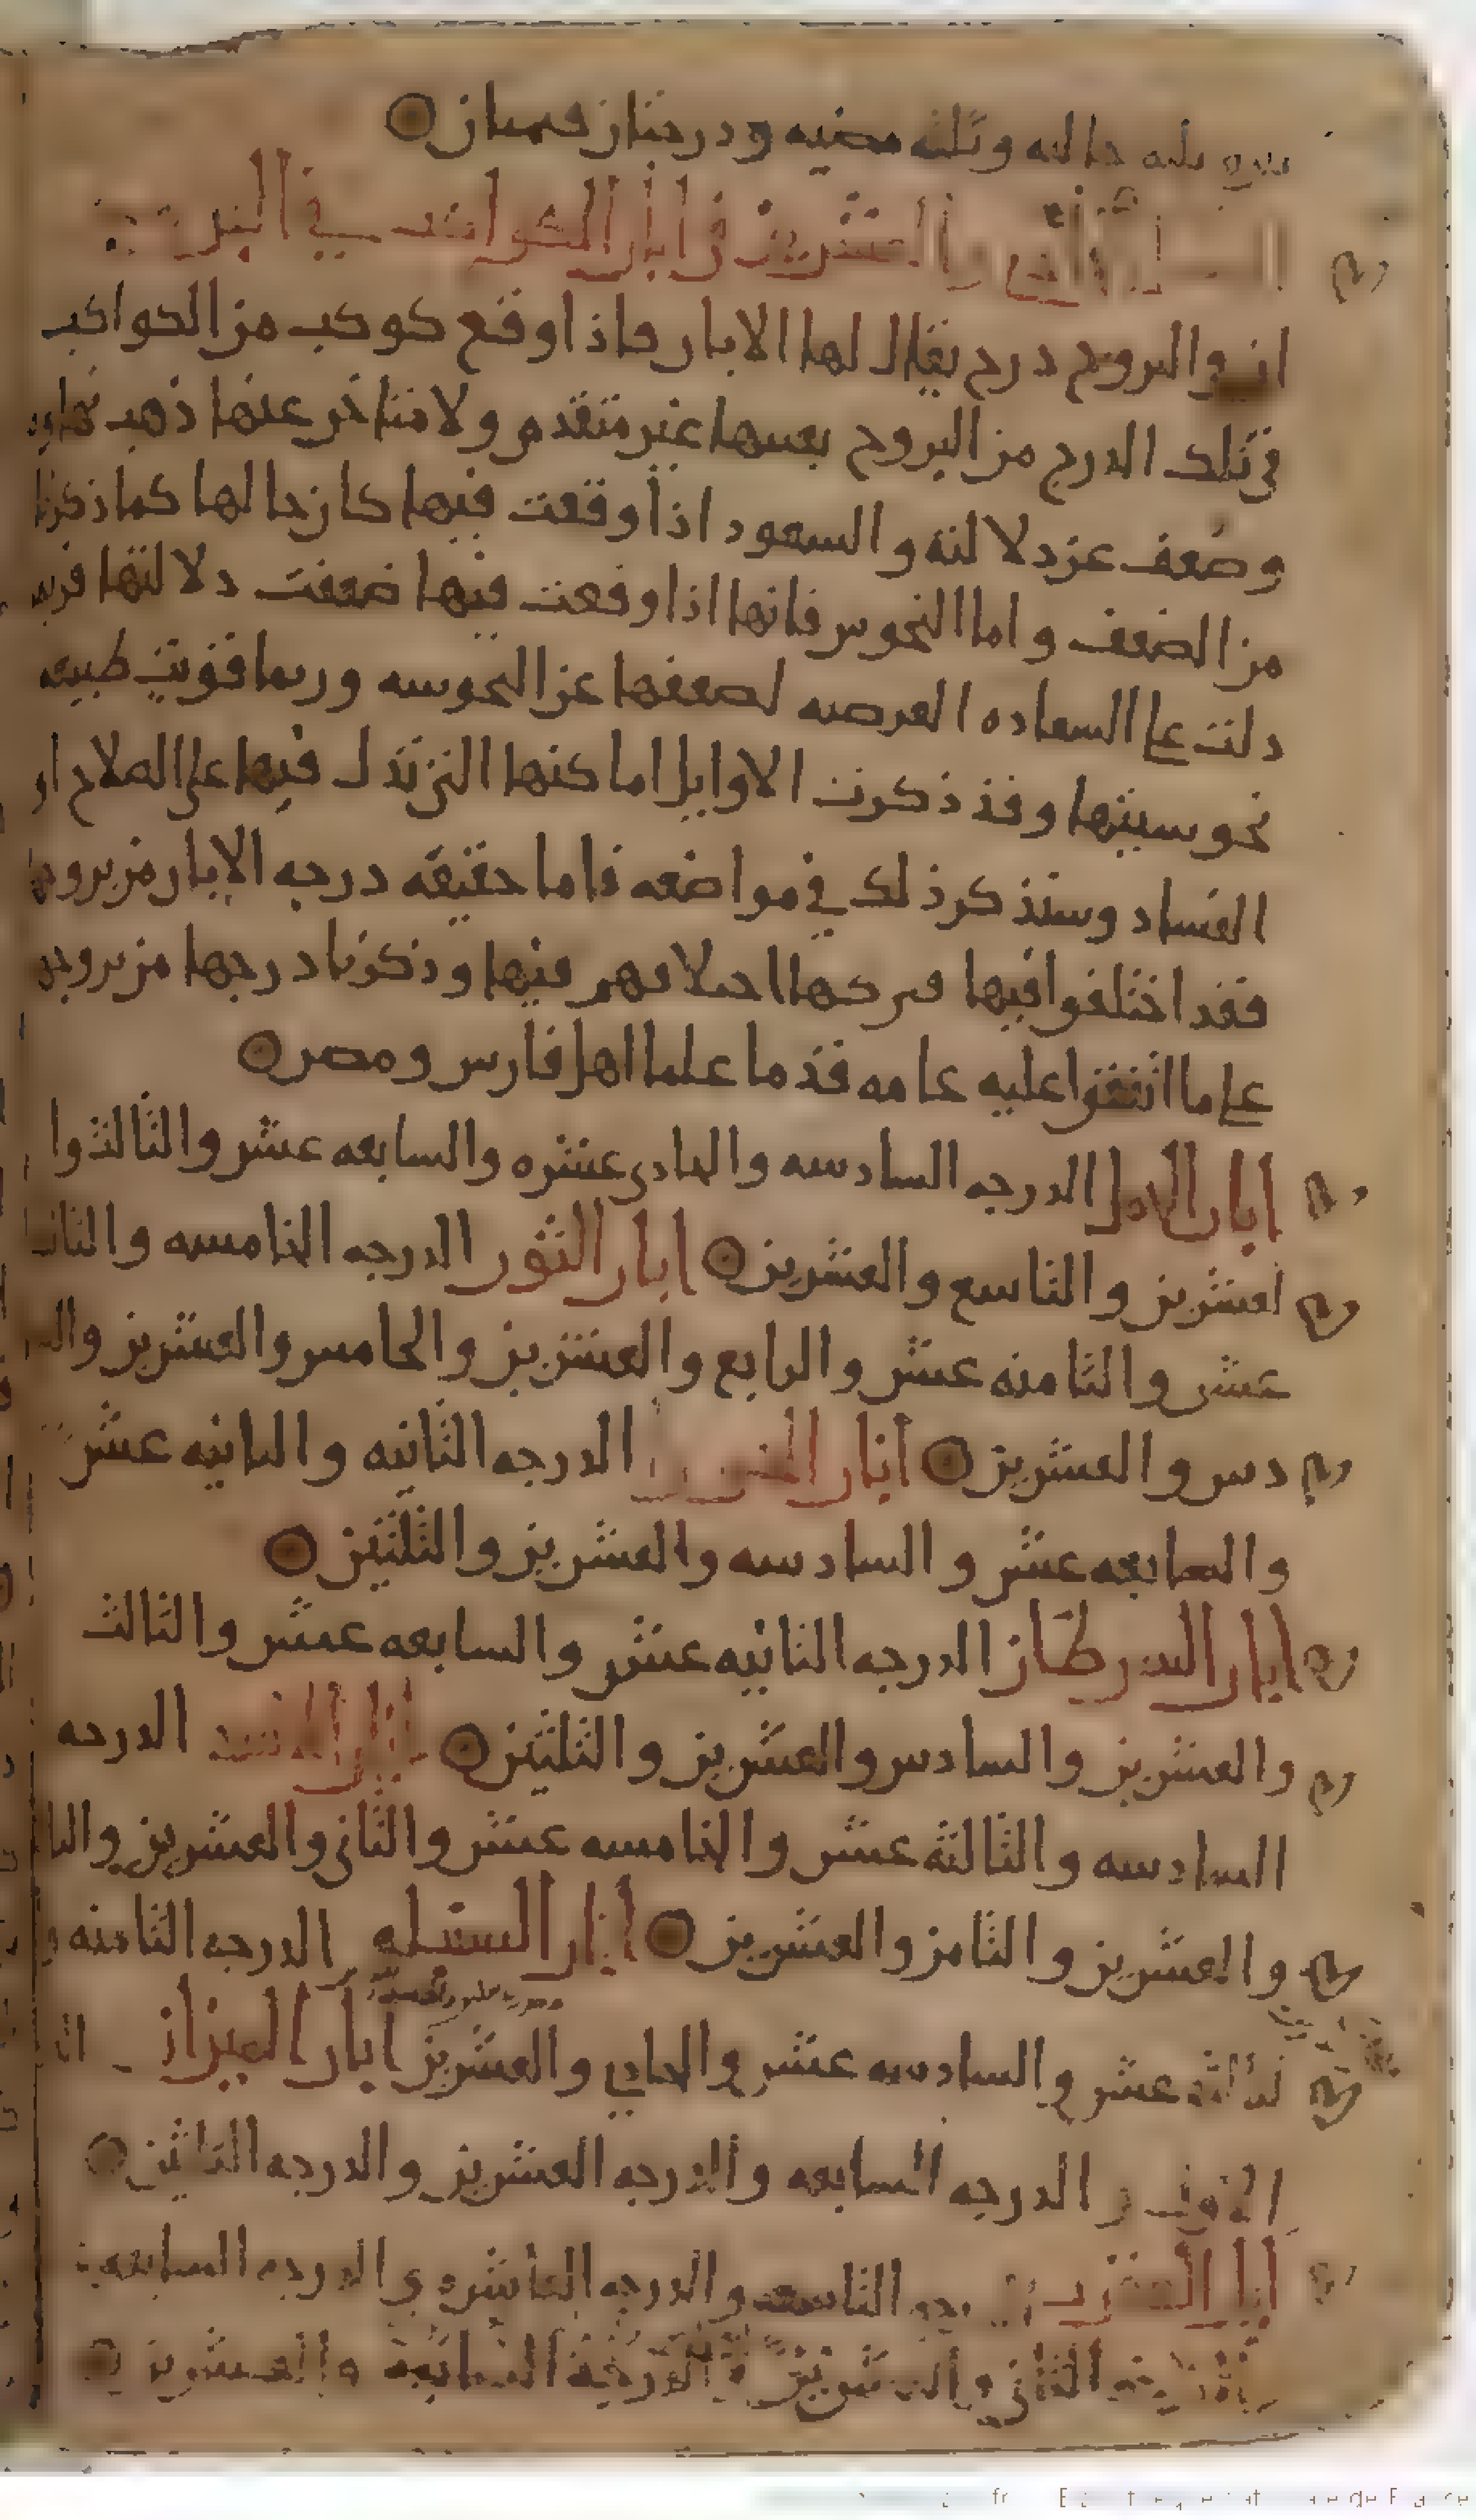 ثلثه خاليه وثلثه مضيه ودرجتان قمتان
والعشرين في ابار الكواكب في البروج
ان في البروج درج يقال لها الابار فاذا وقع كوكب من الكواكب
في تلك الدرج من البروج بعينها غير متقدم ولا متاخر عنها ذهب بهاوه
وضعف عن دلالته والسعود اذا وقعت فيها كان حالها كما ذكرنا
من الضعف واما النحوس فانها اذا وقعت فيها ضعفت دلالتها فربما
دلت على السعاده العرضيه لضعفها عن النحوسه وربما قويت طبيعه
نحوسيتها وقد ذكرت الاوايل اماكنها التي تدل فيها على الصلاح او
الفساد وسنذكر ذلك في مواضعه فاما حقيقه درجه الابار من بروجها
فقد اختلفوا فيها فتركنا اختلافهم فيها وذكرنا درجها من بروجها
على ما اتفقوا عليه عامه قدما علما اهل فارس ومصر
ابار الحمل الدرجه السادسه والحادي عشره والسابعه عشر والثالث وا
لعشرين والتاسع والعشرين ابار الثور الدرجه الخامسه والثالثه
عشر والثامنه عشر والرابع والعشرين والخامس والعشرين والسا
دس والعشرين ابار الجوزا الدرجه الثانيه والثانيه عشر
والسابعه عشر والسادسه والعشرين والثلثين
ابار السرطان الدرجه الثانيه عشر والسابعه عشر والثالث
والعشرين والسادس والعشرين والثلثين ابار الاسد الدرجه
السادسه والثالثه عشر والخامسه عشر والثاني والعشرين والثا
والعشرين والثامن والعشرين ابار السنبله الدرجه الثامنه و
لثالثه عشر والسادسه عشر والحادي والعشرين ابار الميزان
الدرجه السابعه والدرجه العشرين والدرجه الثلثين
ابار العقرب الدرجه التاسعه والدرجه العاشره والدرجه السابعه
الثاني والعشرين والدرجه الثانيه والعشرين